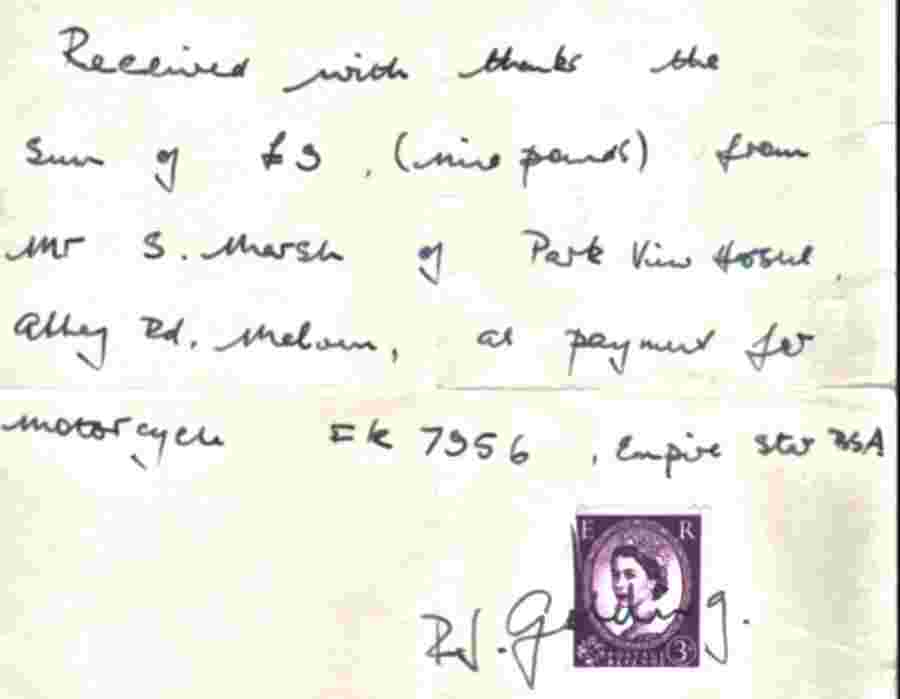 Received with thanks the
sum of £9, (nine pounds) from
Mr S. Marsh of Park View Hostel,
Abbey Rd. Malvern, as payment for
motorcycle FK 7956, Empire Star BSA
E R
R.J. Golding.
3